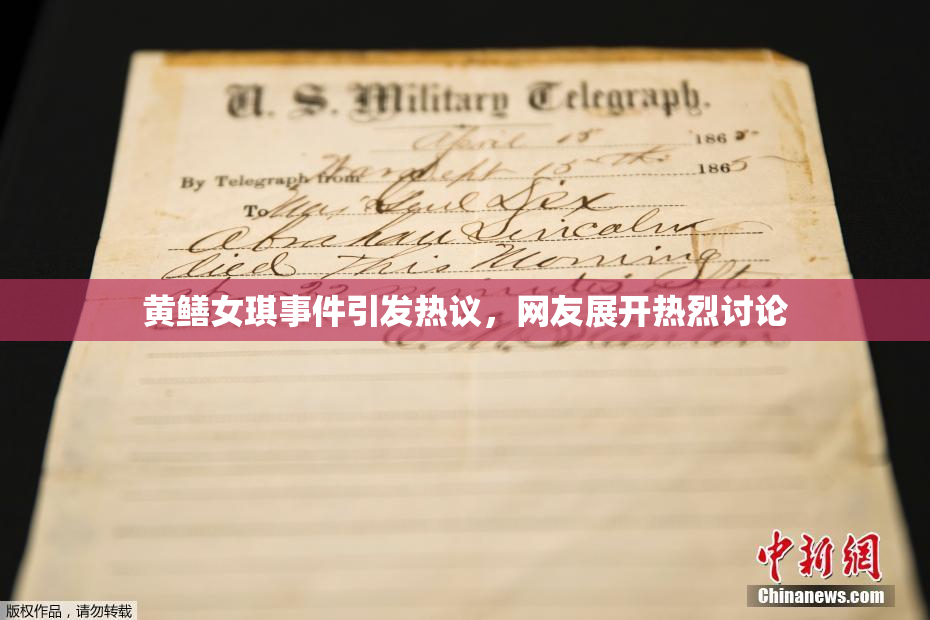 U. S. Military Telegraph.
April 15 1865
By Telegraph from War Dept 15th 1865
To Maj Genl Dix
Abraham Lincoln
died This Morning
at 22 minutes after
黄鳝女琪事件引发热议，网友展开热烈讨论
E. M. Stanton
中新网
Chinanews.com
版权作品，请勿转载